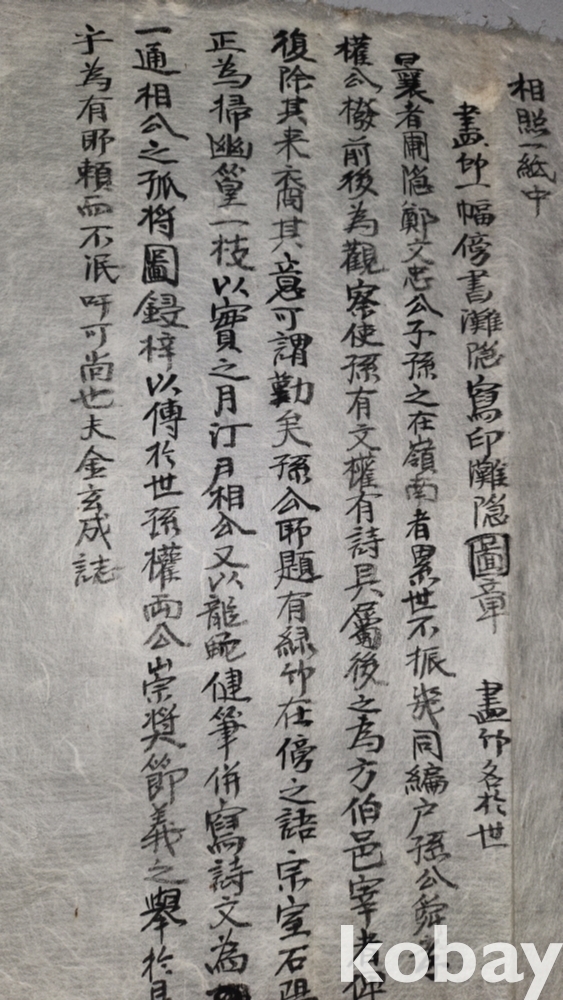 相照一紙中
畫竹一幅傍書灘隱寫印灘隱圖章 畫竹名於世
曩者圃隱鄭文忠公子孫之在嶺南者累世不振幾同編户孫公舜
權公橃前後為觀察使孫有文權有詩具屬後之為方伯邑宰者俾
復除其来裔其意可謂勤矣孫公所題有緑竹在傍之語宗室石陽
正為掃幽篁一枝以實之月汀月相公又以龍蛇健筆併寫詩文為
一通相公之孤将圖鋟梓以傳於世孫權両公崇奬節義之舉於是
乎為有所頼而不泯吁可尚也夫金玄成誌
kobay